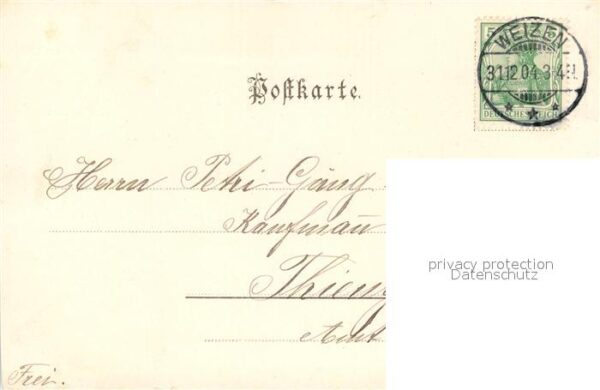 WEIZEN
31.12.04.3-4N
DEUTSCHES REICH
Postkarte.
Herrn Petri-Gäng
Kaufmann
Thieng
Amt
privacy protection
Datenschutz
Frei.